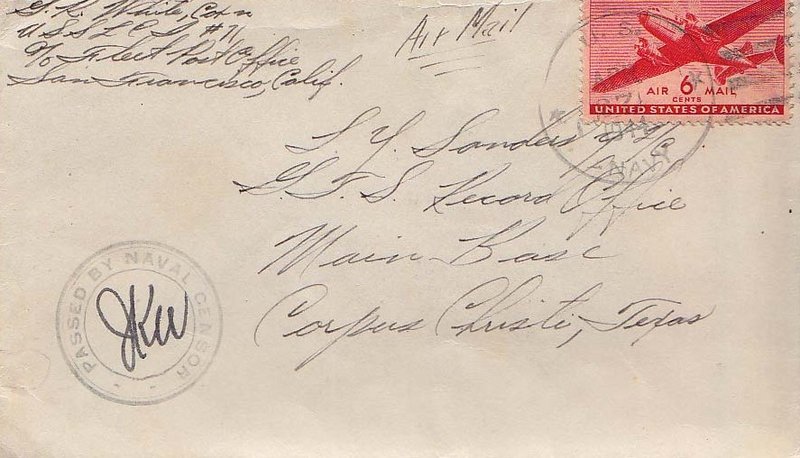 G. R. White, Coxn
U S S L C S #71
c/o Fleet Post Office
San Francisco, Calif.
Air Mail
AIR 6 MAIL
CENTS
UNITED STATES OF AMERICA
1944
NAVY
L. Y. Sanders
G. T. S. Record Office
Main Base
Corpus Christi, Texas
PASSED BY NAVAL CENSOR
JKW